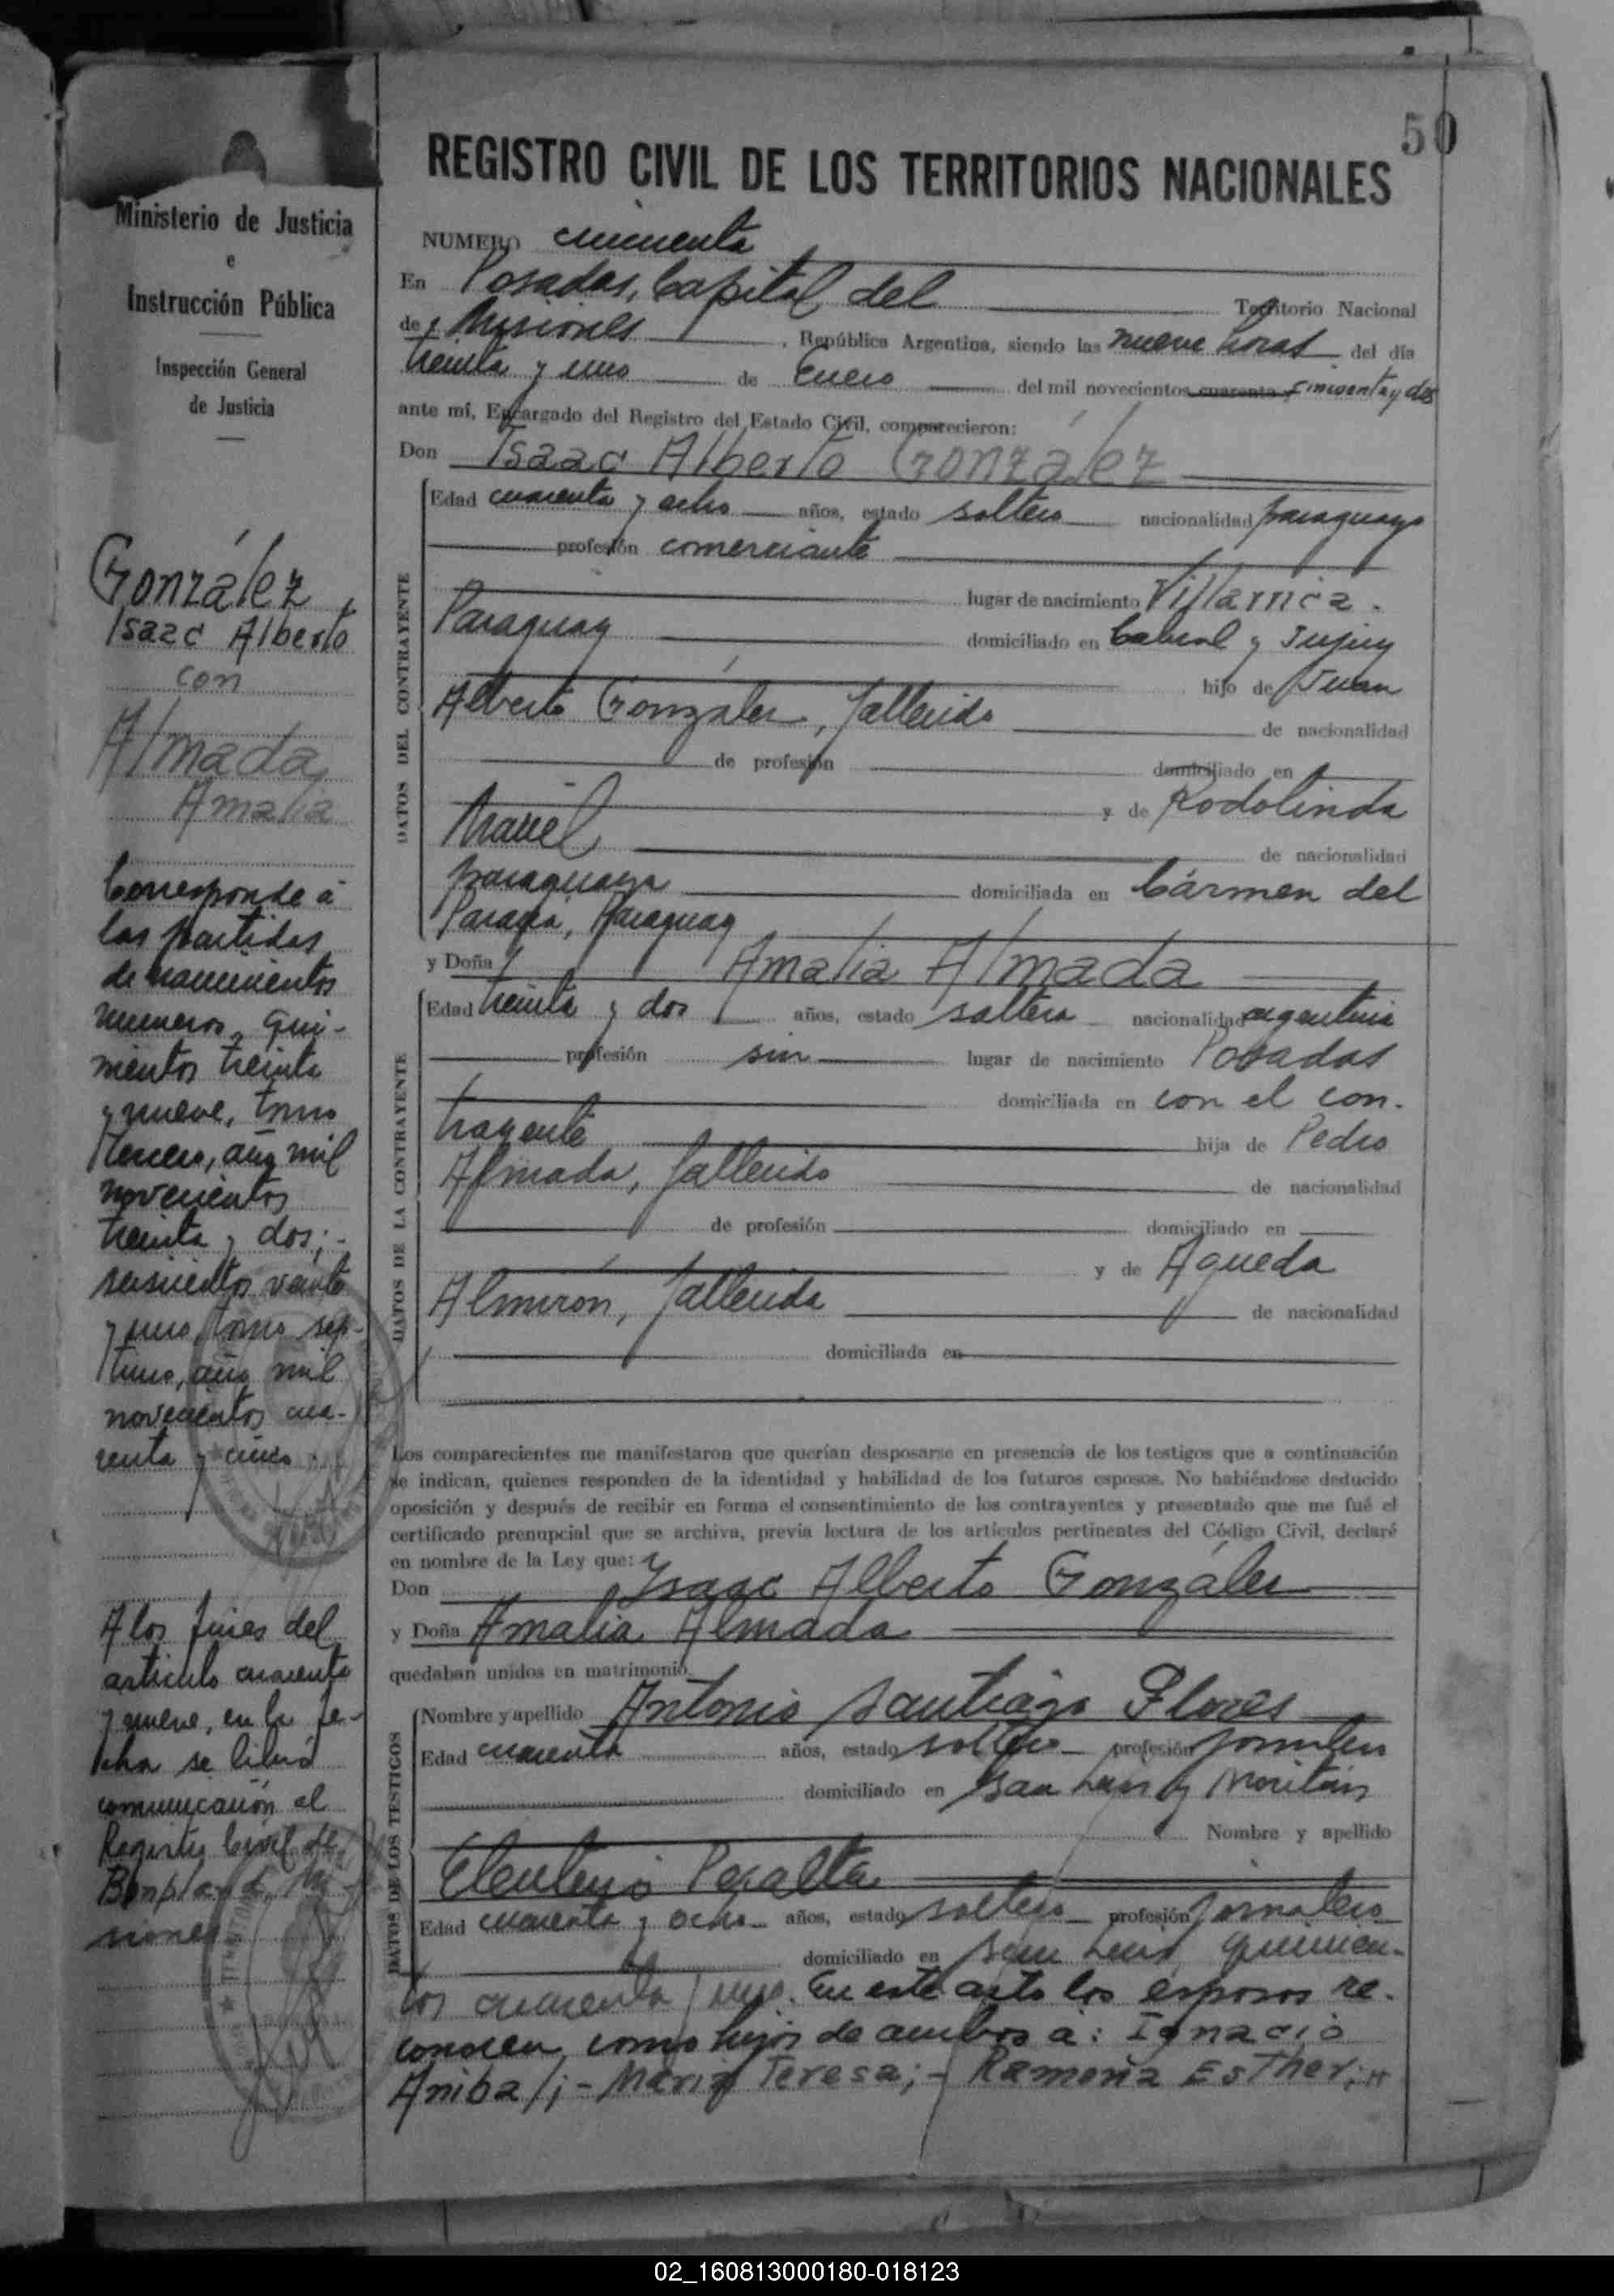 50
REGISTRO CIVIL DE LOS TERRITORIOS NACIONALES
Ministerio de Justicia
e
Instrucción Pública
Inspección General
de Justicia
González
Isaac Alberto
con
Almada
Amalia
Corresponde á
las partidas
de nacimientos
numeros, qui-
nientos treinta
y nueve, tomo
tercero, año mil
novecientos
treinta y dos;-
seiscientos veinte
y uno, tomo sép-
timo, año mil
novecientos cua-
renta y cinco.
A los fines del
articulo cuarenta
y nueve, en la fe-
cha se libró
comunicación al
Registro Civil de
Bonpland, Mi-
siones
NUMERO cincuenta
En Posadas, Capital del Territorio Nacional
de Misiones, República Argentina, siendo las nueve horas del día
treinta y uno de Enero del mil novecientos cuarenta cincuenta y dos
ante mí, Encargado del Registro del Estado Civil, comparecieron:
Don Isaac Alberto González
DATOS DEL CONTRAYENTE
Edad cuarenta y ocho años, estado soltero nacionalidad paraguayo
profesión comerciante
lugar de nacimiento Villarrica.
Paraguay domiciliado en Cabral y Jujuy
hijo de Juan
Alberto González, fallecido de nacionalidad
de profesión domiciliado en
y de Rodolinda
de nacionalidad
paraguaya domiciliada en Cármen del
Paraná, Paraguay
y Doña Amalia Almada
DATOS DE LA CONTRAYENTE
Edad treinta y dos años, estado soltera nacionalidad argentina
profesión sin lugar de nacimiento Posadas
domiciliada en con el con-
trayente hija de Pedro
Almada, fallecido de nacionalidad
de profesión domiciliado en
y de Agueda
Almirón, fallecida de nacionalidad
domiciliada en
Los comparecientes me manifestaron que querían desposarse en presencia de los testigos que a continuación
se indican, quienes responden de la identidad y habilidad de los futuros esposos. No habiéndose deducido
oposición y después de recibir en forma el consentimiento de los contrayentes y presentado que me fué el
certificado prenupcial que se archiva, previa lectura de los artículos pertinentes del Código Civil, declaré
en nombre de la Ley que:
Don Isaac Alberto González
y Doña Amalia Almada
quedaban unidos en matrimonio.
DATOS DE LOS TESTIGOS
Nombre y apellido Antonio Santiago Flores
Edad cuarenta años, estado soltero profesión jornalero
domiciliado en San Luis y
Nombre y apellido
Eleuterio Peralta
Edad cuarenta y ocho años, estado soltero profesión jornalero
domiciliado en San Luis, quinien-
tos cuarenta y uno. En este acto los esposos re-
conocen como hijos de ambos a: Ignacio
Anibal;- María Teresa;- Ramona Esther;
02_160813000180-018123